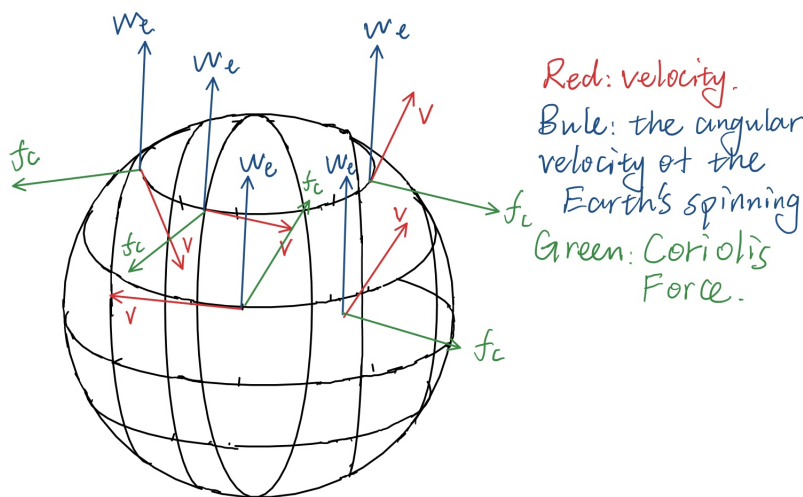 We
We
We
fc
V
fc
V
We
fc
We
V
V
fc
V
fc
Red: velocity.
Bule: the angular
velocity of the
Earth's spinning
Green: Coriolis
Force.